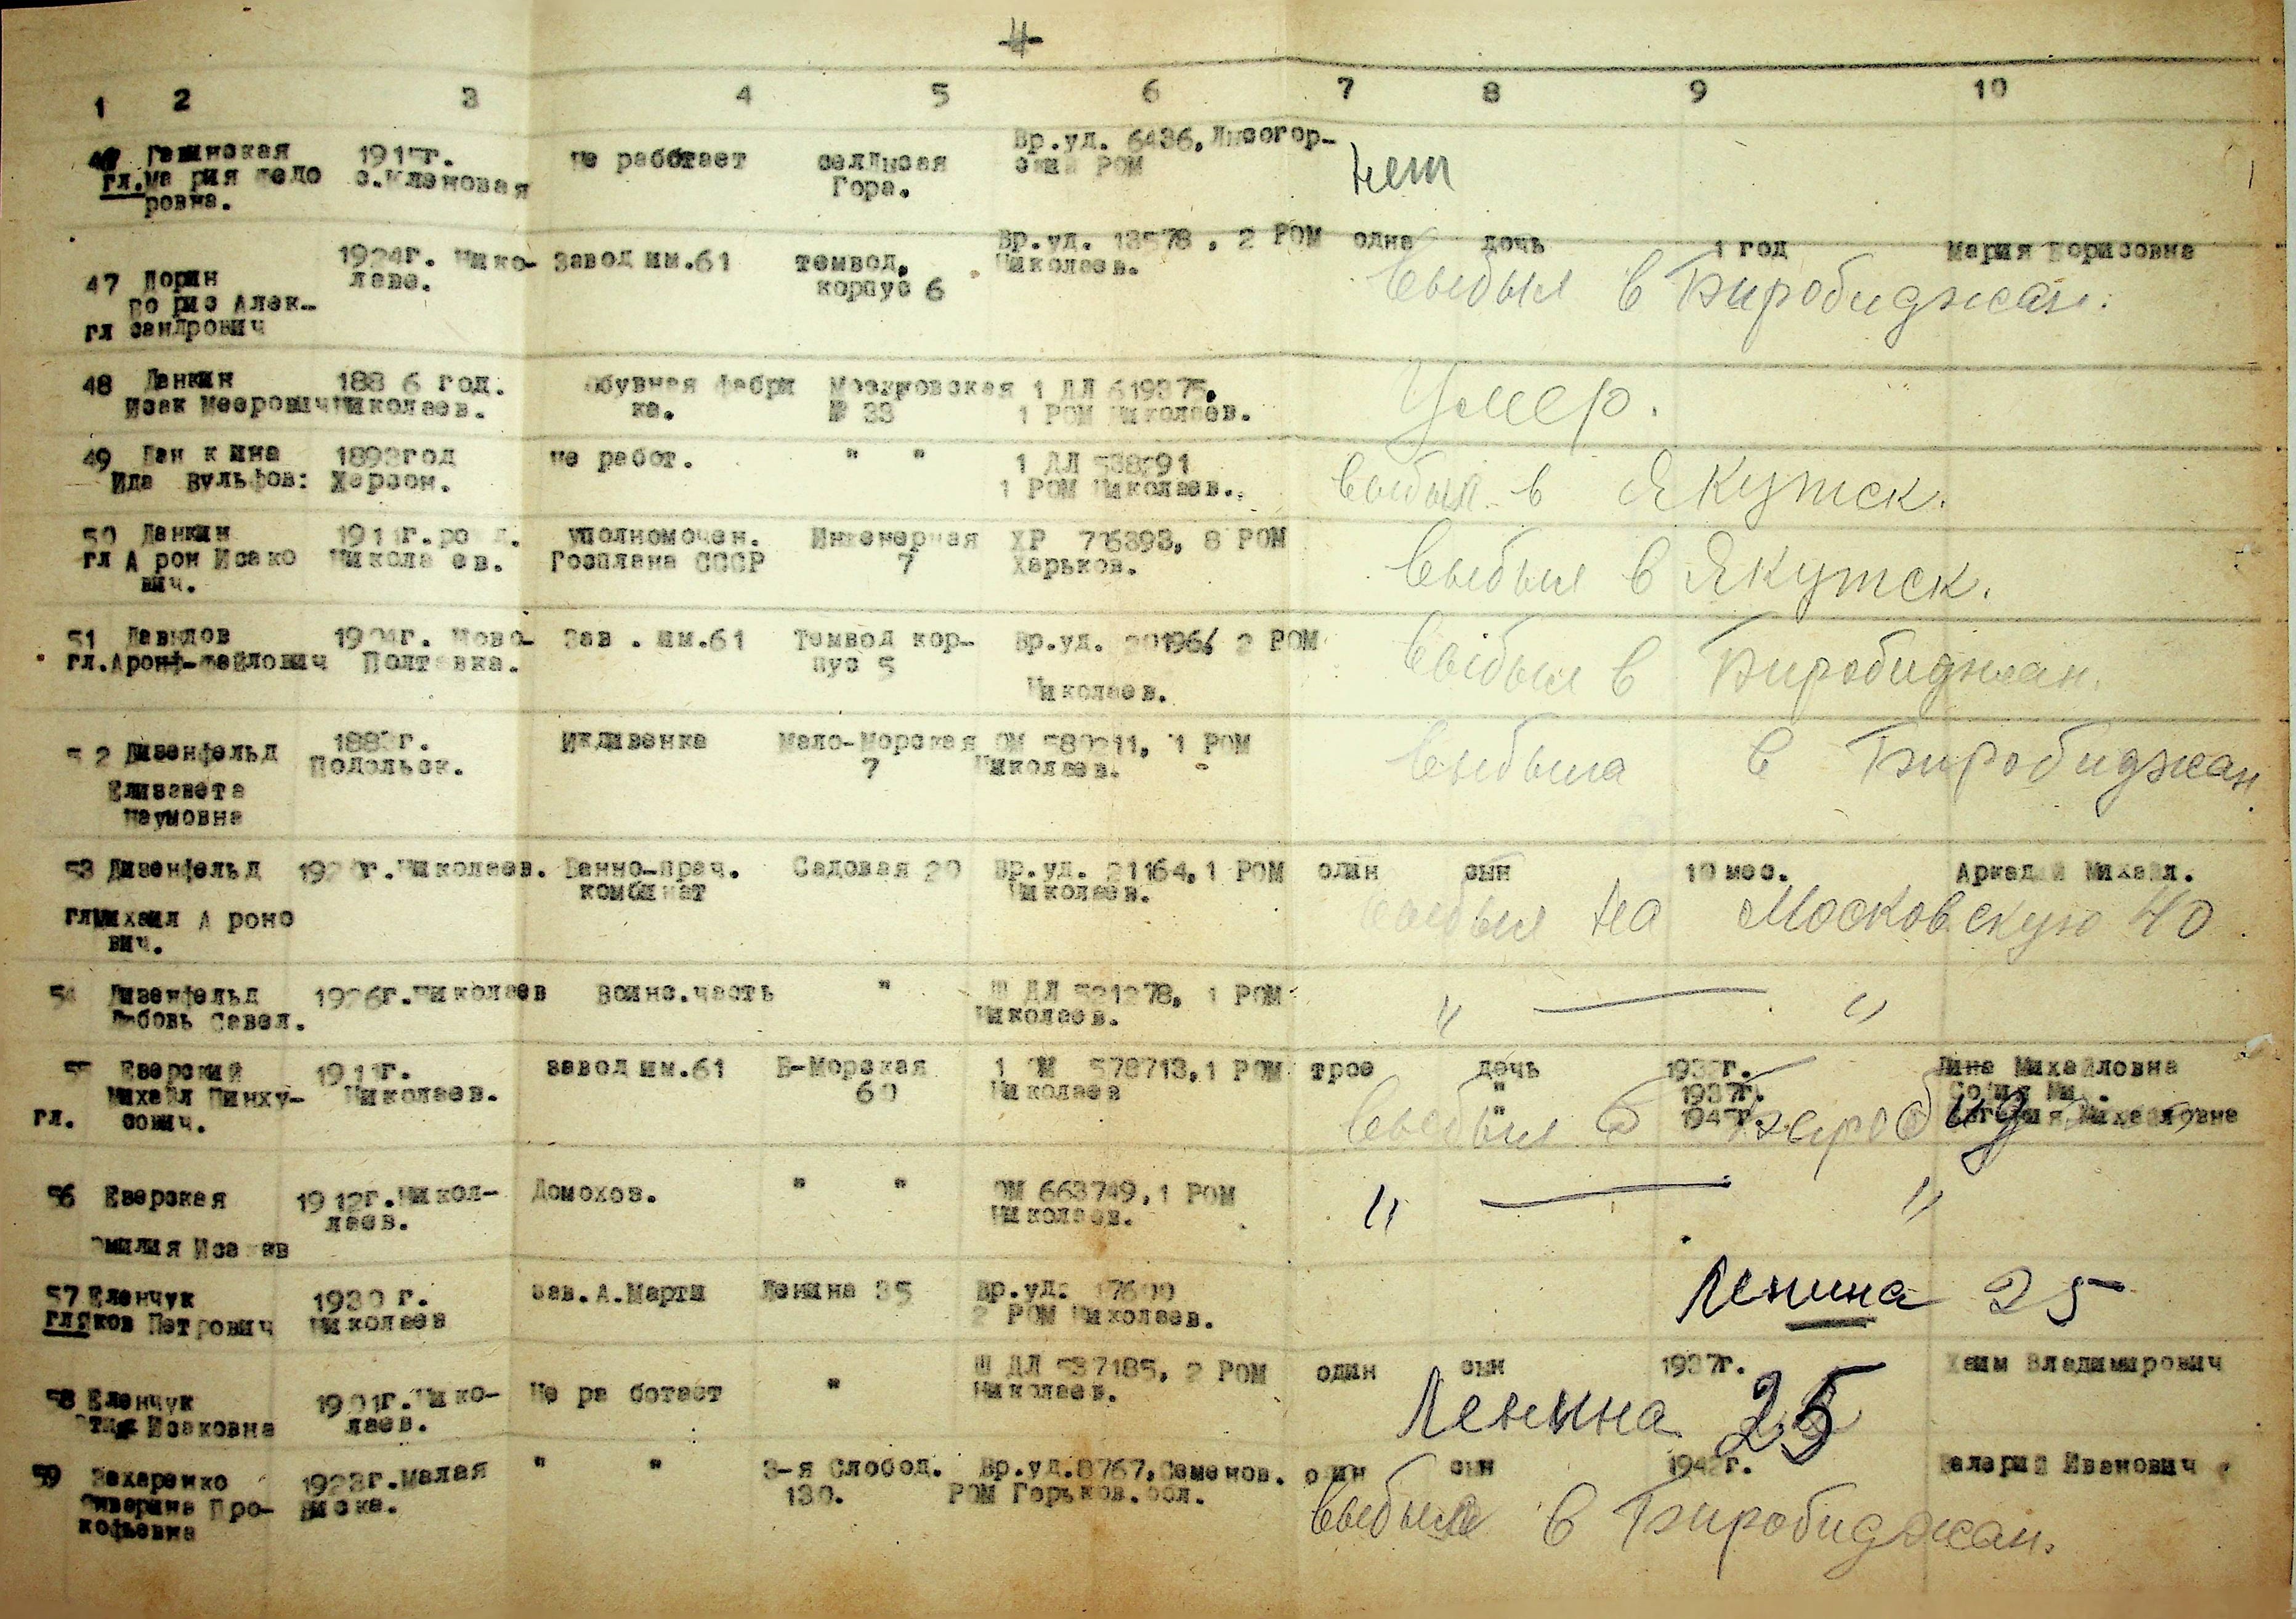 4
1 2 3 4 5 6 7 8 9 10
46 1915г. не работает село Лысая Вр.уд. 6436, Лисогор- нет
гл. Мария Федо с.Кленовая Гора. ский РОМ
ровна.
47 Дорин 1924г. Нико- Завод им.61 Темвод, Вр.уд. 13578 . 2 РОМ одна дочь 1 год Мария Борисовна
Борис Алек- лаев. корпус 6 Николаев. выбыл в Биробиджан.
гл сандрович
48 Данкин 1886 год. Обувная фабри Мозыковская 1 ДЛ 619375, Умер.
Исак Меерович Николаев. ка. № 33 1 РОМ Николаев.
49 Данкина 1893год не работ. " " 1 ДЛ 538291 выбыл в Якутск.
Ида Вульфов: Херсон. 1 РОМ Николаев.
50 Данкин 1911г.ро д. уполномочен. Инженерная ХР 776393, 8 РОМ выбыл в Якутск.
гл Арон Исако Николаев. Госплана СССР 7 Харьков.
вич.
51 Давыдов 1904г. Ново- Зав . им.61 Темвод кор- Вр.уд. 20196, 2 РОМ выбыл в Биробиджан.
гл.Арон -фейлович Полтавка. пус 5 Николаев.
52 Дизенфельд 188 г. Иждивенка Мало-Морская ОМ 580211, 1 РОМ выбыла в Биробиджан
Елизавета Подольск. 7 Николаев.
Наумовна
53 Дизенфельд 192 г.Николаев. Банно-прач. Садовая 20 Вр.уд. 21164,1 РОМ один сын 10 мес. Аркадий Михайл.
комбинат Николаев. выбыл на Московскую 40.
гл Михаил Ароно
вич.
54 Дизенфельд 1926г.Николаев воинс.часть " Ш ДЛ 521278, 1 РОМ " — "
Любовь Савел. Николаев.
55 Езерский 1911г. завод им.61 Б-Морская 1 ОМ 578713,1 РОМ трое дочь 1932г. Лина Михайловна
Михайл Пинху- Николаев. 60 Николаев " 1937г. София Ми .
гл. сович. " 194 г. Евгения Михайловна
выбыл в Биробид
56 Езерская 1912г.Никол- Домохоз. " " ОМ 663749,1 РОМ " — "
лаев. Николаев.
Эмилия Исаков
57 Еленчук 1930 г. зав.А.Марти Ленина 35 Вр.уд. 17600 Ленина 25
гл Яков Петрович Николаев 2 РОМ Николаев.
58 Еленчук 1901г.Нико- Не работает " Ш ДЛ 537185, 2 РОМ один сын 1937г. Хаим Владимирович
Исаковна лаев. Николаев. Ленина 25
59 Захаренко 1923г.Малая " " 3-я Слобод. Вр.уд.8767,Семенов. один сын 194 г. Валерий Иванович
Северина Про- Виска. 130. РОМ Горьков.обл. выбыла в Биробиджан.
кофьевна